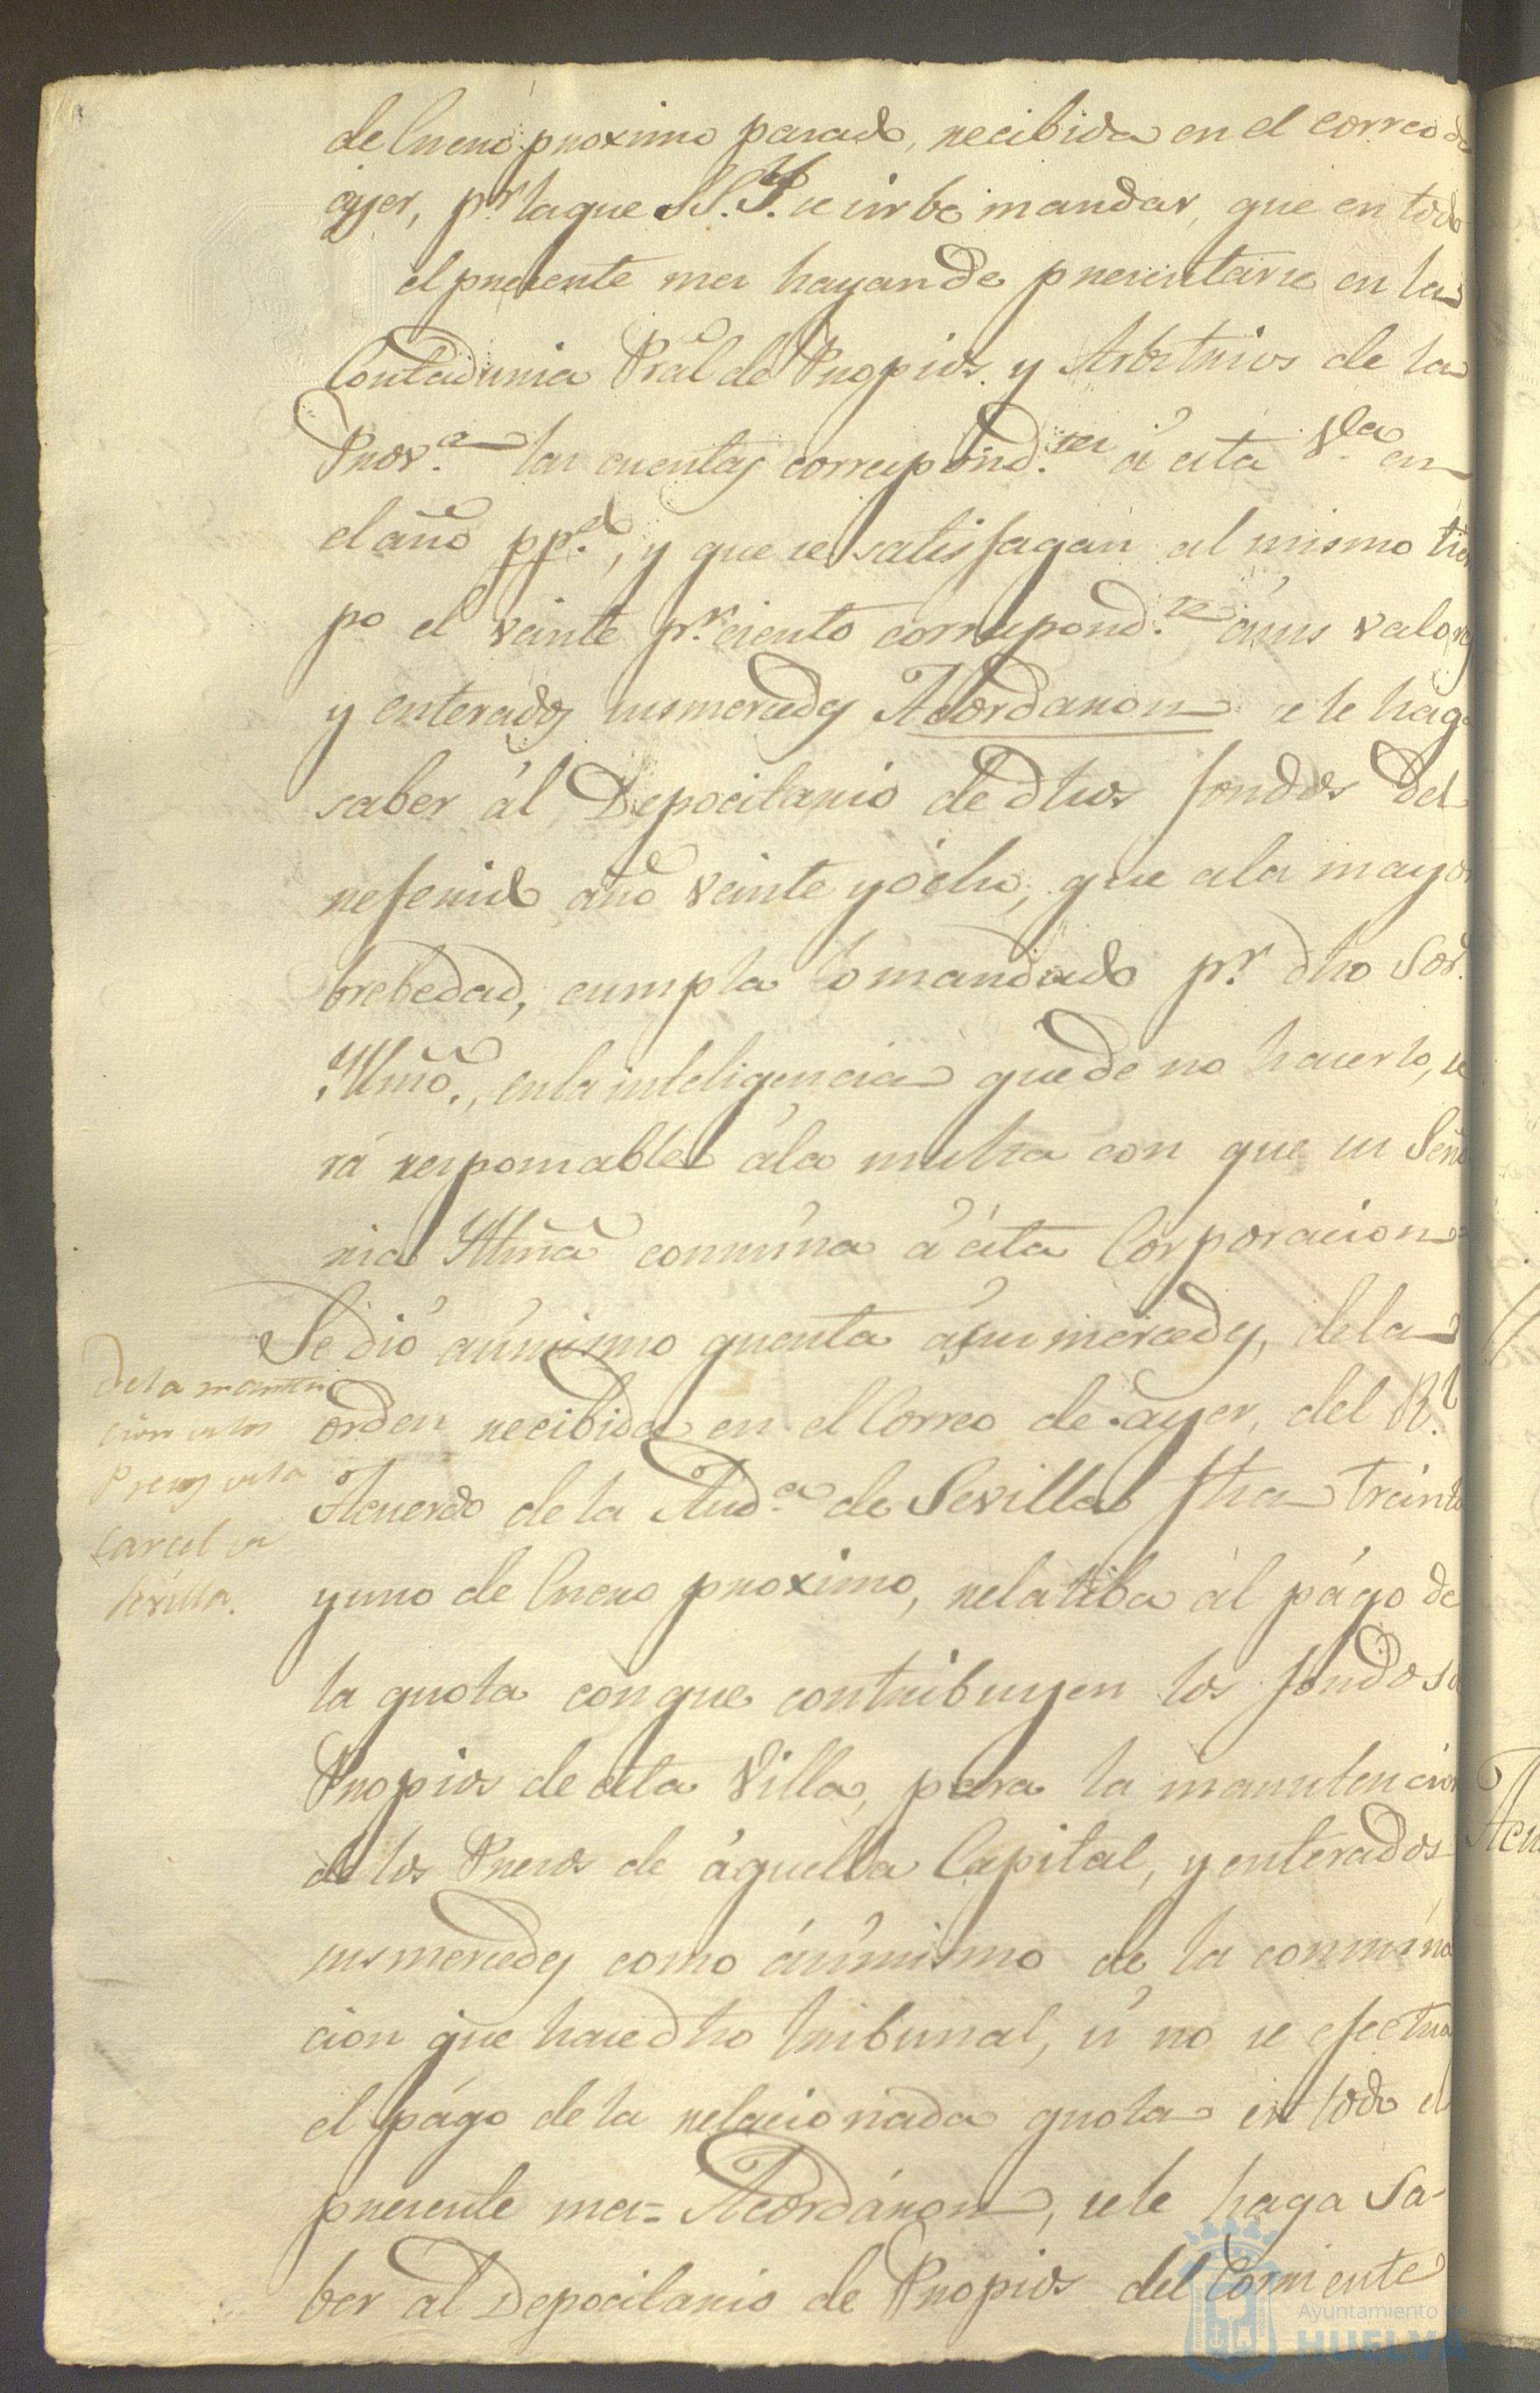 de Enero proximo pasado, recibida en el correo de
ayer, pr. la que S.S.Y. se sirbe mandar, que en todo
el presente mes hayan de presentarse en la
Contaduria Pral de Propios y Arbitrios de la
Prova. las cuentas correspond.tes á esta V.la en
el año pp.do, y que se satisfagan al mismo tiem
po el veinte pr. ciento correspond.te á sus valores
y enterados susmercedes Acordaron se le haga
saber ál Depocitario de dhos fondos del
referido año veinte y ócho, que a la mayor
brebedad, cumpla lo mandado pr. dho Sor.
Yllmo., en la inteligencia que de no hacerlo, se
rá responsable á la multa con que su Seño
ria Yllma conmina á ésta Corporacion=
Se dió asimismo quenta á susmercedes, de la
orden recibida en el Correo de ayer, del Rl.
Acuerdo de la Auda. de Sevilla fha treinta
y uno de Enero proximo, relatiba ál págo de
la quota con que contribuyen los fondos de
Propios de esta Villa, para la manutencion
de los Presos de áquella Capital, y enterados
susmercedes como ásimismo de la conmina
cion que hace dho tribunal, si no se efectua
el págo de la relacionada quota en todo el
presente mes= Acordáron, se le haga sa-
ber al Depocitario de Propios del Corriente
De la manten
cion de los
Presos de la
Carcel de
Sevilla.
Acu
Ayuntamiento de
HUELVA